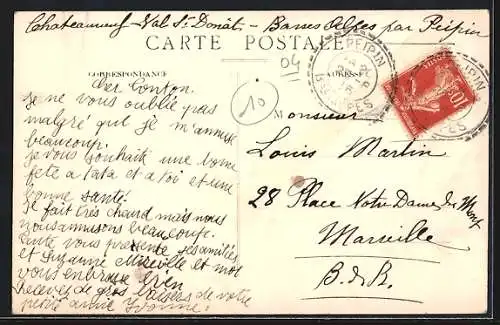 Chateauneuf-Val St Donat - Basses Alpes par Peipin
CARTE POSTALE
04
CORRESPONDANCE
ADRESSE
PEIPIN
PEIPIN
10
10
Cher Tonton.
Je ne vous oublie pas
malgré que je m'amuse
beaucoup.
Je vous souhaite une bonne
fete a tata et a toi et une
bonne santé.
Il fait très chaud mais nous
nous amusons beaucoup.
Tante vous presente ses amitiés
et Suzanne Mireille et moi
vous embrasse bien
Recevez de gros baisers de votre
petite amie Yvonne.
Monsieur
Louis Martin
28 Place Notre Dame du Mont
Marseille
B. d. R.